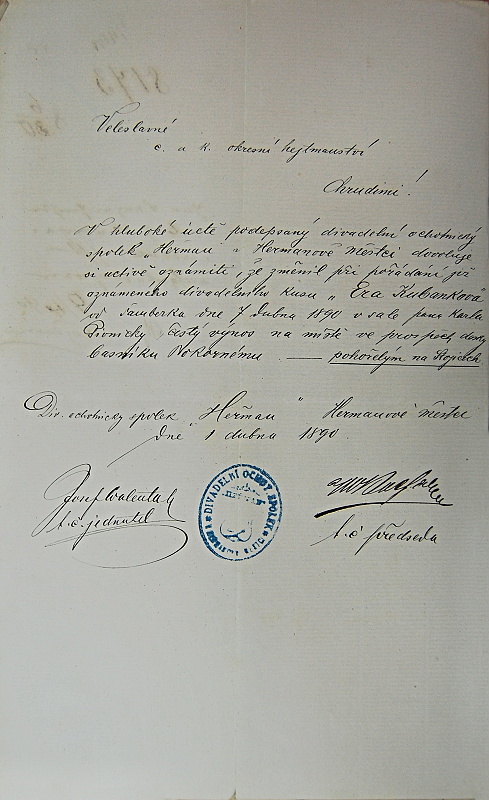 8173
Veleslavné
c. a k. okresní hejtmanství
Chrudimi!
V hluboké úctě podepsaný divadelní ochotnický
spolek „Heřman" v Heřmanově Městci dovoluje
si uctivě oznámiti, že změnil při pořádání již
oznámeného divadelního kusu „Eva Kubanková"
od Šamberka dne 7 dubna 1890 v sale pana Karla
čistý výnos na místě ve prospěch
Pokornému. — pohořelým na
Div. ochotnický spolek „Heřman" Heřmanově Městci
dne 1 dubna 1890.
Josef
t. č. jednatel
DIVADELNÍ OCHOT. SPOLEK
t. č. předseda